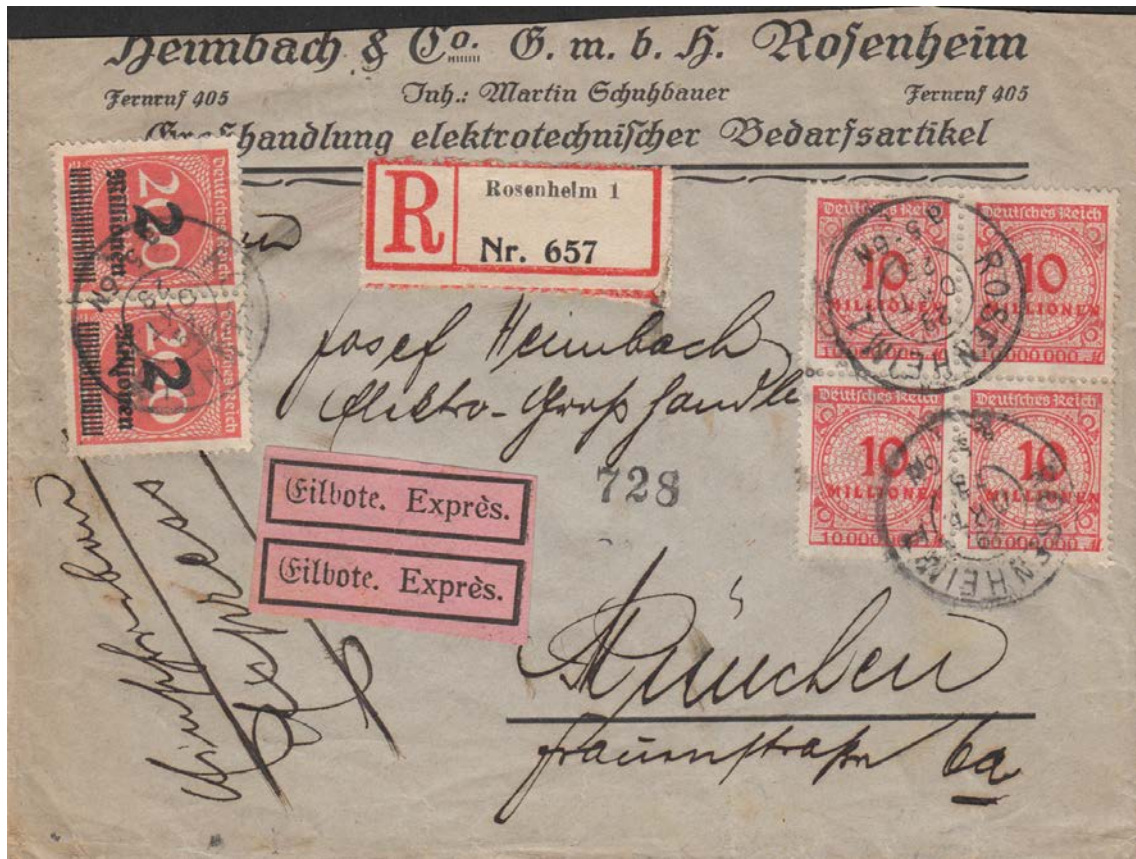 Heimbach & Co. G. m. b. H. Rosenheim
Fernruf 405 Inh.: Martin Schuhbauer Fernruf 405
Großhandlung elektrotechnischer Bedarfsartikel
R
Rosenheim 1
Nr. 657
Deutsches Reich
200
2
Millionen
Deutsches Reich
200
2
Millionen
Deutsches Reich
10
MILLIONEN
10.000.000
Deutsches Reich
10
MILLIONEN
10.000.000
Deutsches Reich
10
MILLIONEN
10.000.000
Deutsches Reich
10
MILLIONEN
10.000.000
ROSENHEIM 1
ROSENHEIM
Josef Heimbach
Elektro-Großhandle
728
Eilbote. Exprès.
Eilbote. Exprès.
Einschreiben
Express
München
Frauenstraße 6a